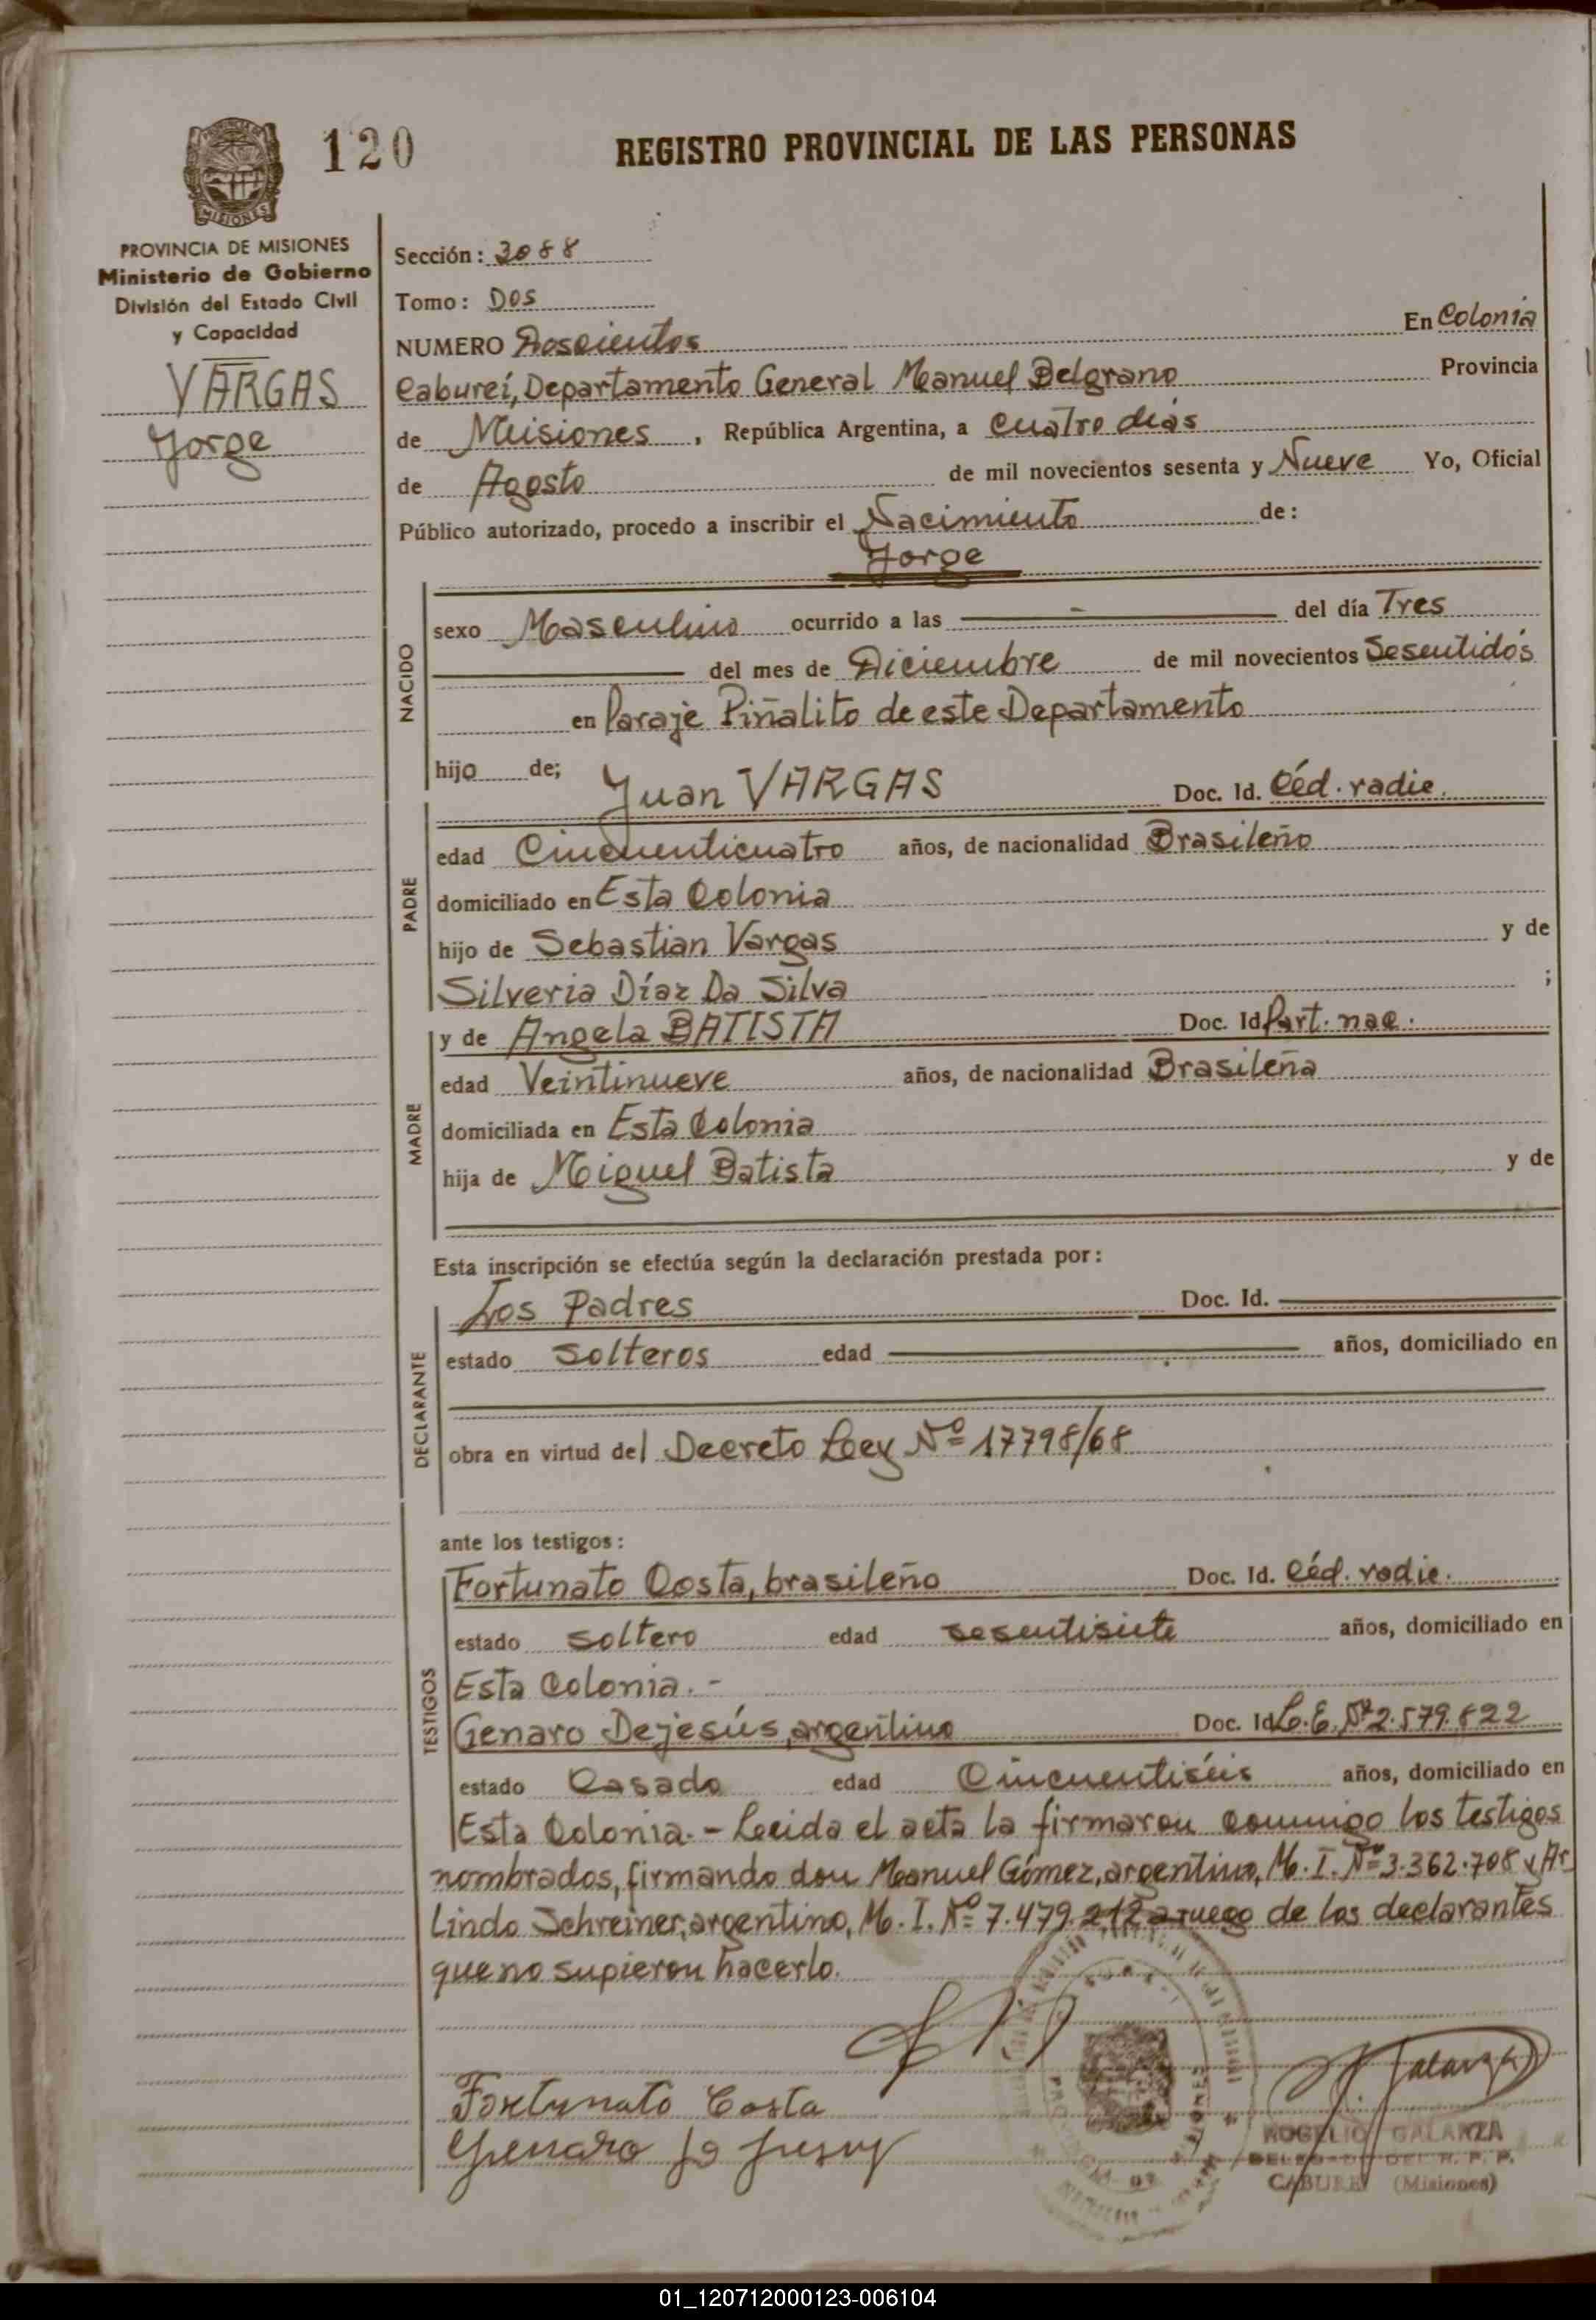 120
REGISTRO PROVINCIAL DE LAS PERSONAS
PROVINCIA DE MISIONES
Ministerio de Gobierno
División del Estado Civil
y Capacidad
VARGAS
Jorge
Sección: 3088
Tomo: Dos
NUMERO Doscientos En Colonia
Cabureí, Departamento General Manuel Belgrano Provincia
de Misiones, República Argentina, a cuatro días
de Agosto de mil novecientos sesenta y Nueve Yo, Oficial
Público autorizado, procedo a inscribir el Nacimiento de:
Jorge
NACIDO
sexo Masculino ocurrido a las del día Tres
del mes de Diciembre de mil novecientos Sesentidós
en Paraje Piñalito de este Departamento
hijo de; Juan VARGAS Doc. Id. Céd. radic.
PADRE
edad Cincuenticuatro años, de nacionalidad Brasileño
domiciliado en Esta Colonia
hijo de Sebastian Vargas y de
Silveria Díaz Da Silva ;
y de Angela BATISTA Doc. Id Part. nac.
MADRE
edad Veintinueve años, de nacionalidad Brasileña
domiciliada en Esta Colonia
hija de Miguel Batista y de
Esta inscripción se efectúa según la declaración prestada por:
DECLARANTE
Los Padres Doc. Id.
estado Solteros edad años, domiciliado en
obra en virtud del Decreto Ley Nº 17798/68
ante los testigos:
TESTIGOS
Fortunato Costa, brasileño Doc. Id. Céd. radic.
estado soltero edad sesentisiete años, domiciliado en
Esta Colonia.-
Genaro Dejesús, argentino Doc. Id L.E. Nº 2.579.822
estado Casado edad Cincuentiséis años, domiciliado en
Esta Colonia.- Leída el acta la firmaron conmigo los testigos
nombrados, firmando don Manuel Gómez, argentino, M. I. Nº 3.362.708 y Ar
lindo Schreiner, argentino, M. I. Nº 7.479.212 a ruego de los declarantes
que no supieron hacerlo.
Fortunato Costa
Genaro
Galarza
ROGELIO GALARZA
DELEGADO DEL R. P. P.
CABUREI (Misiones)
01_120712000123-006104